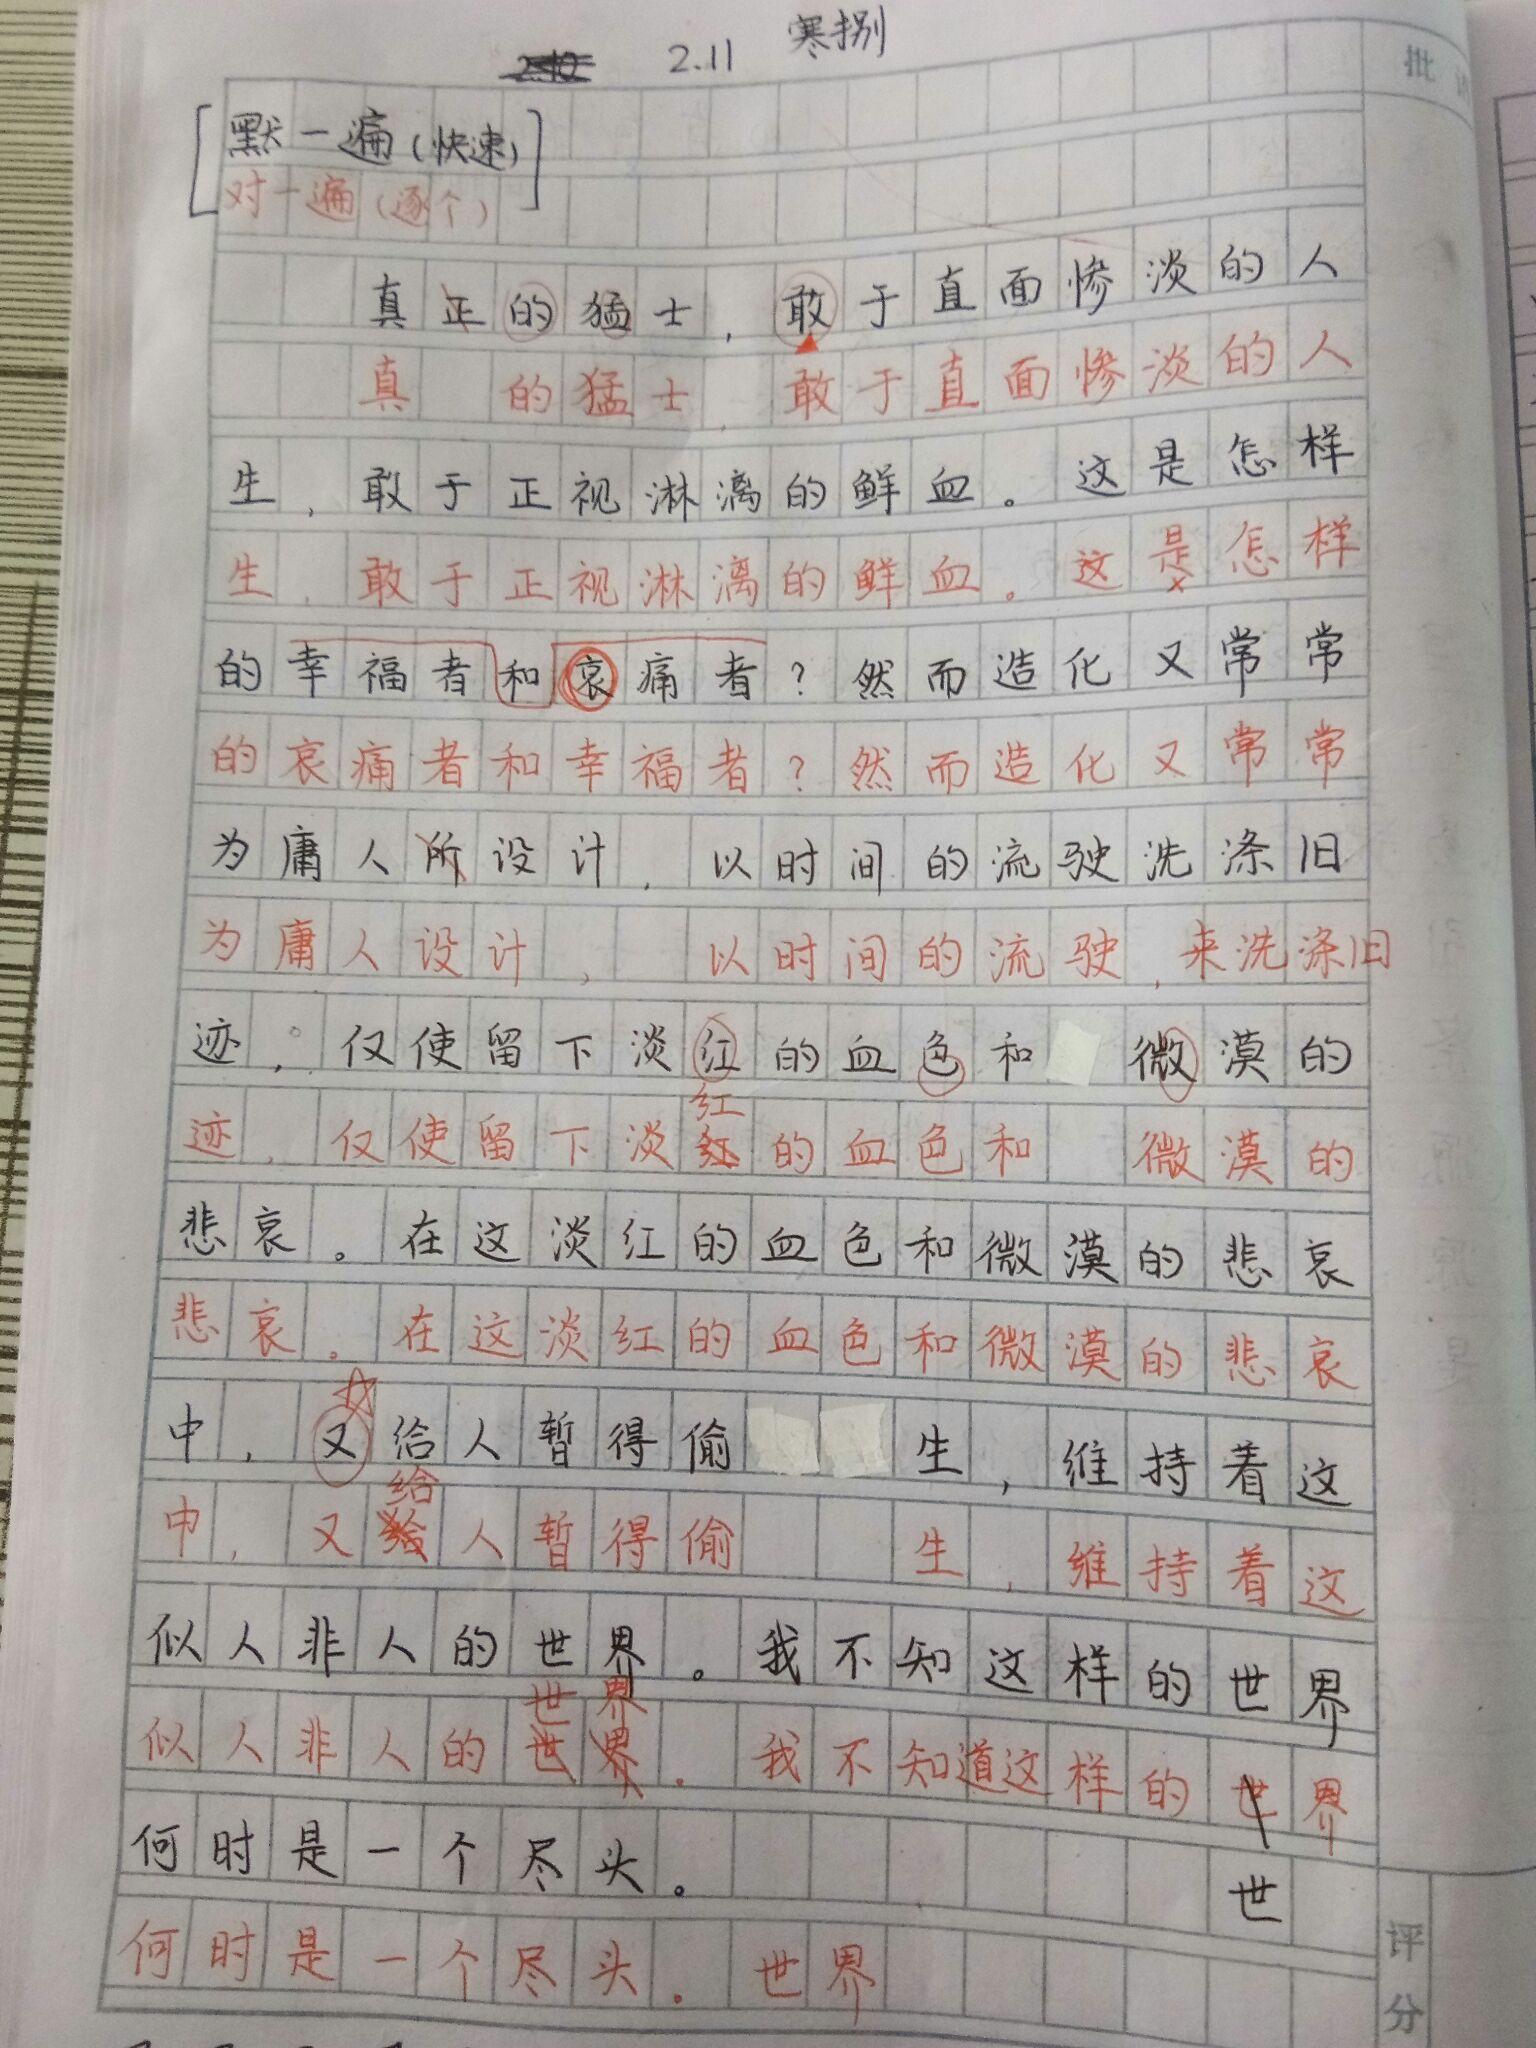 2.11 寒捌
批
默一遍(快速)
对一遍(逐个)
真正的猛士,敢于直面惨淡的人
真 的猛士,敢于直面惨淡的人
生,敢于正视淋漓的鲜血。这是怎样
生,敢于正视淋漓的鲜血。这是怎样
的幸福者和哀痛者?然而造化又常常
的哀痛者和幸福者?然而造化又常常
为庸人所设计,以时间的流驶洗涤旧
为庸人设计,以时间的流驶,来洗涤旧
迹,仅使留下淡红的血色和 微漠的
红
迹,仅使留下淡红的血色和 微漠的
悲哀。在这淡红的血色和微漠的悲哀
悲哀。在这淡红的血色和微漠的悲哀
中,又给人暂得偷 生,维持着这
给
中,又给人暂得偷 生,维持着这
似人非人的世界。我不知这样的世界
世界
似人非人的世界。我不知道这样的世界
何时是一个尽头。
世
何时是一个尽头。世界
评分